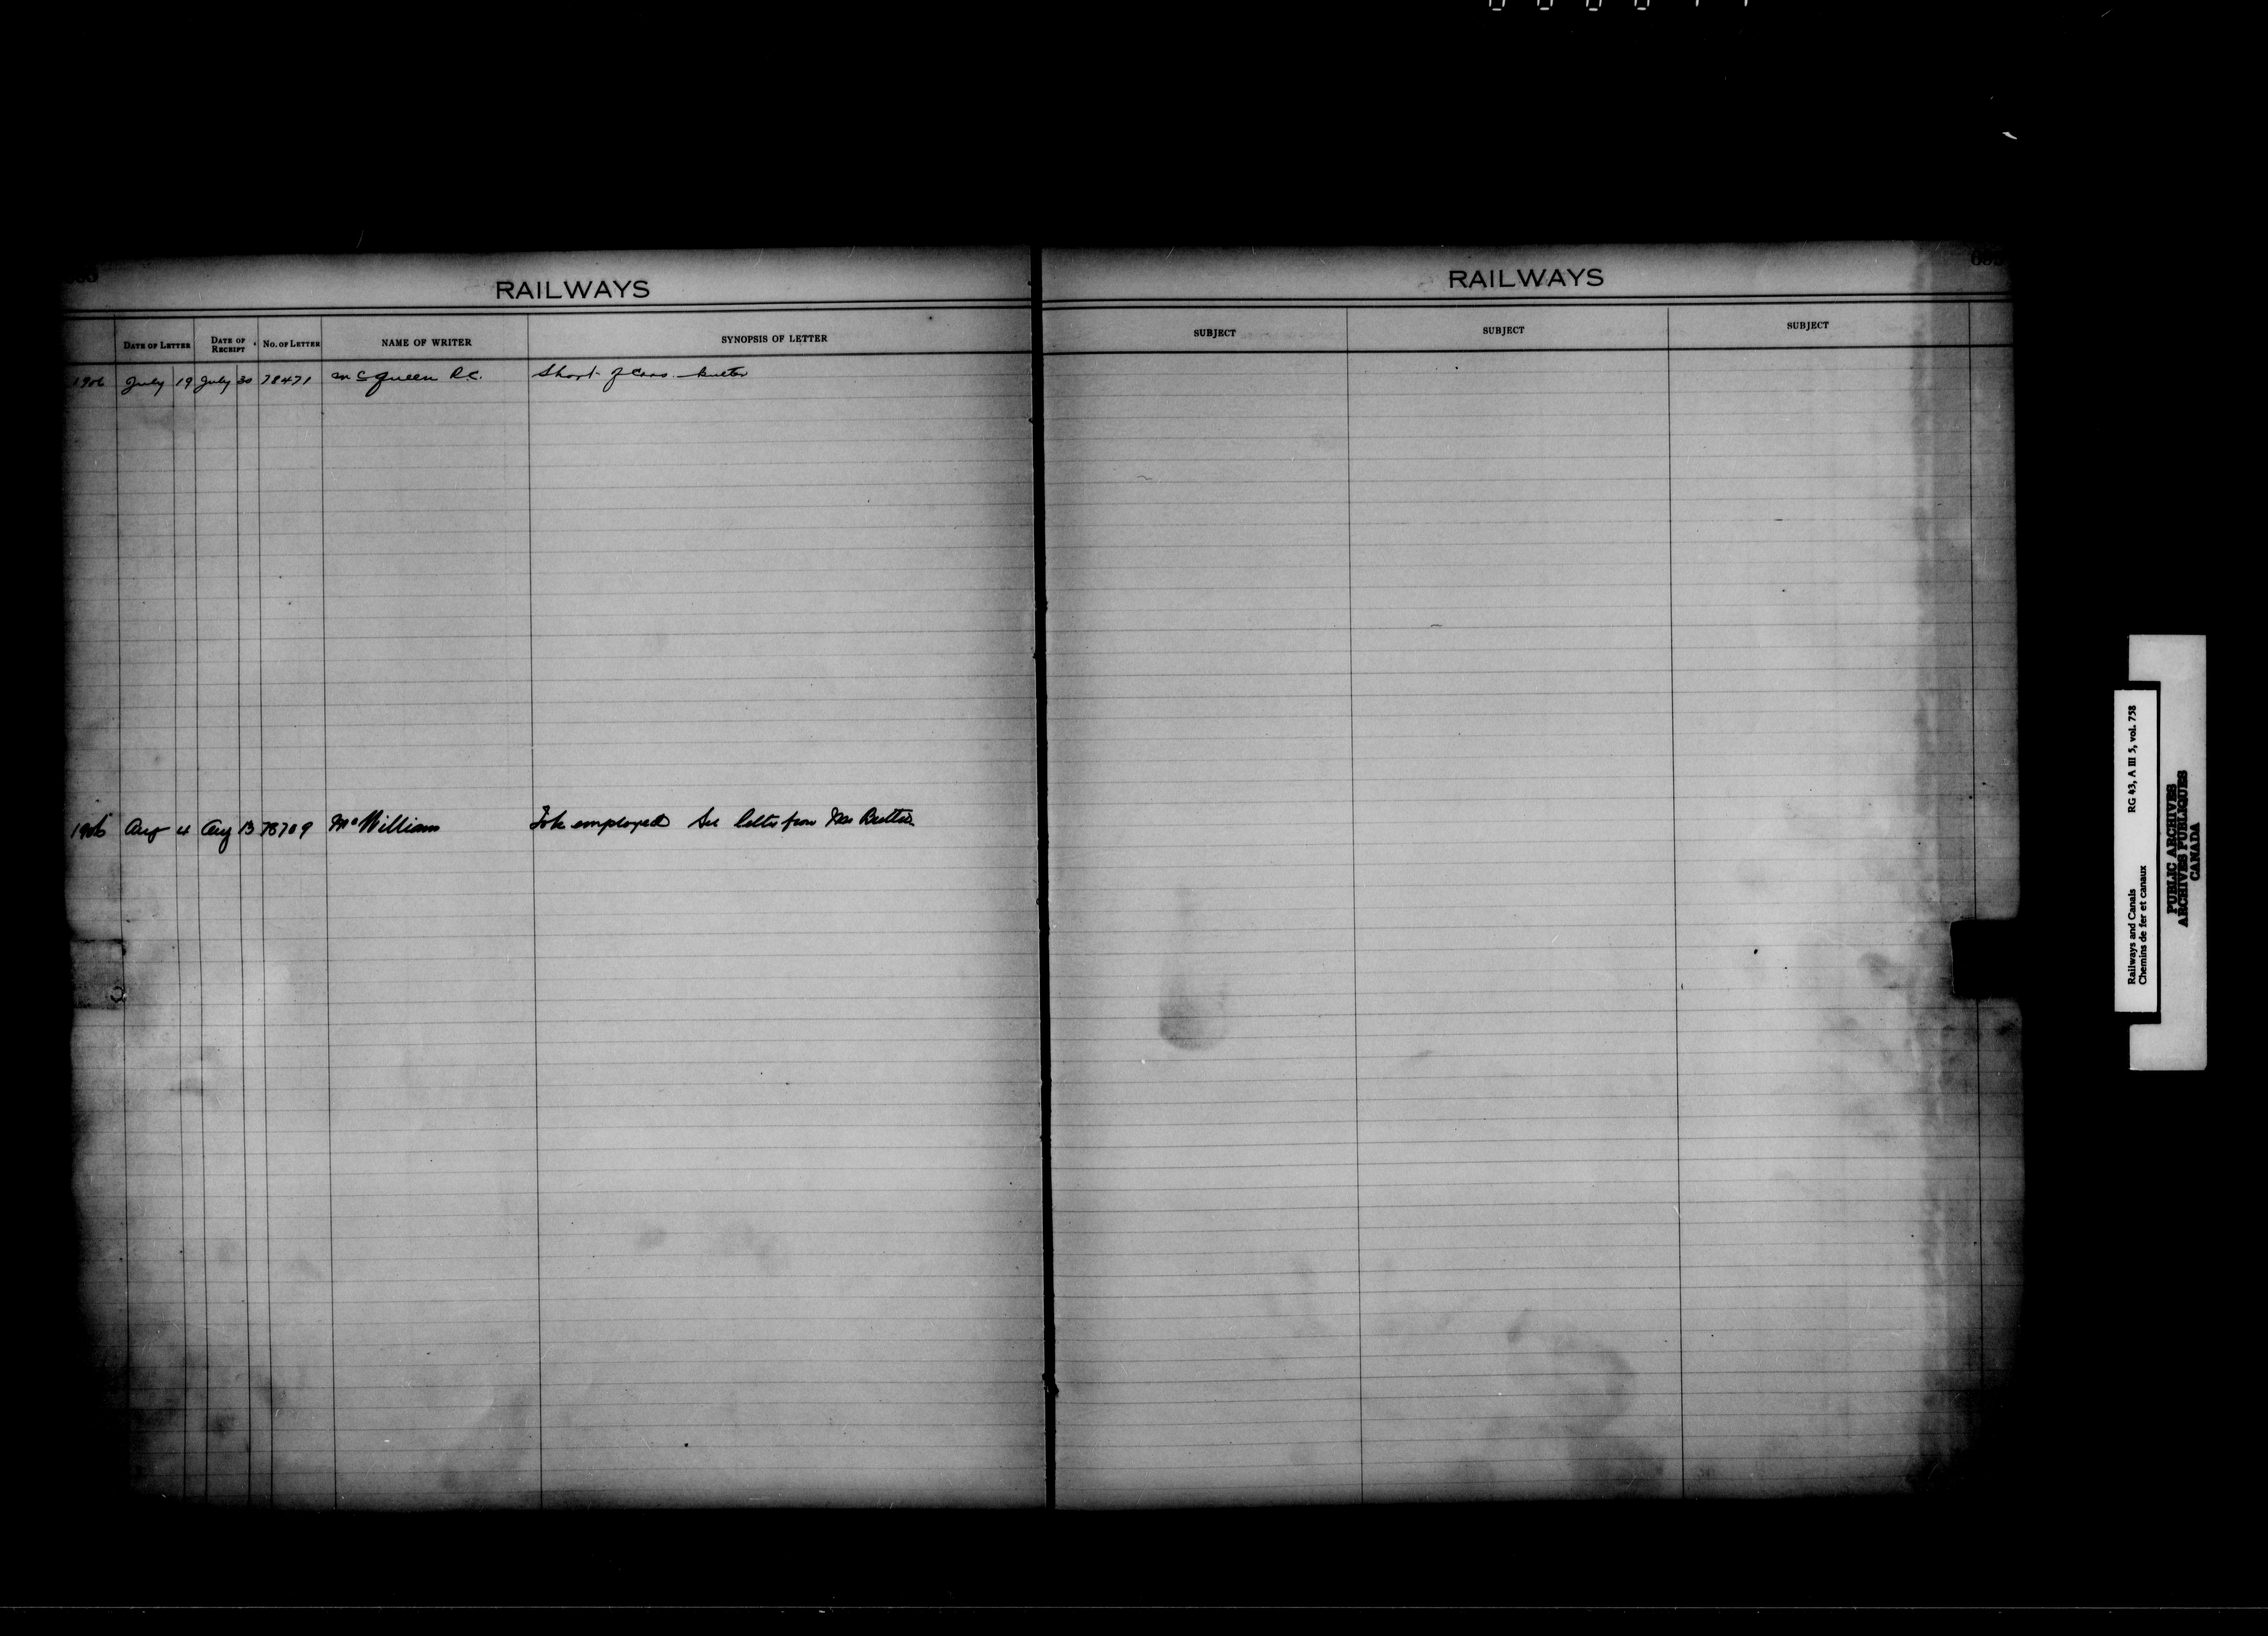 RAILWAYS
DATE OF LETTER DATE OF RECEIPT No. OF LETTER NAME OF WRITER SYNOPSIS OF LETTER
1906 July 19 July 30 78471 McQueen R.C. Short
1906 Aug 4 Aug 13 78709 McWilliam To be employed See letter from
RAILWAYS
SUBJECT SUBJECT SUBJECT
Railways and Canals RG 43, A III 5, vol. 758
Chemins de fer et canaux
PUBLIC ARCHIVES
ARCHIVES PUBLIQUES
CANADA